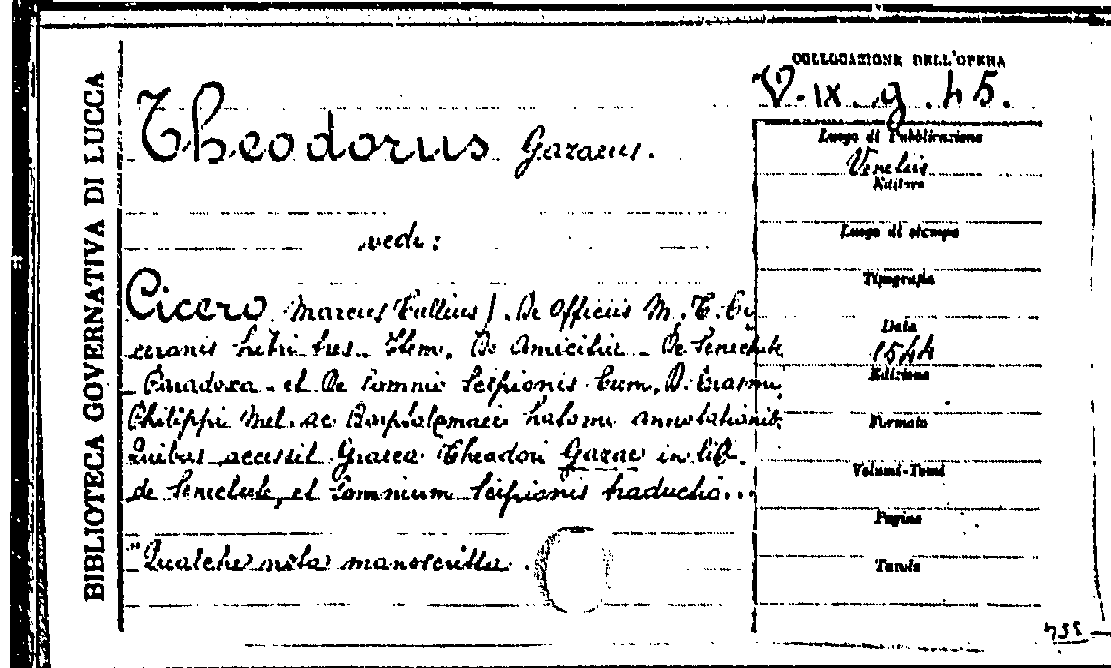 BIBLIOTECA GOVERNATIVA DI LUCCA
COLLOCAZIONE DELL'OPERA
V. IX. g. 45.
Theodorus Gazaeus.
vedi:
Cicero Marcus Tullius). De Officiis M. T. Ci
ceronis Libri tres. Item, De Amicitia - De Senectute
Paradoxa - et De Somnio Scipionis Cum, D. Erasmi,
Philippi Mel. ac Bartolomaei Latomi annotationib.
Quibus accessit Graeca Theodori Gazae in lib.
de Senectute, et Somnium Scipionis traductio...
"Qualche nota manoscritta.
Luogo di Pubblicazione
Venetiis
Editore
Luogo di stampa
Tipografia
Data
1544
Edizione
Formato
Volumi-Tomi
Pagine
Tavole